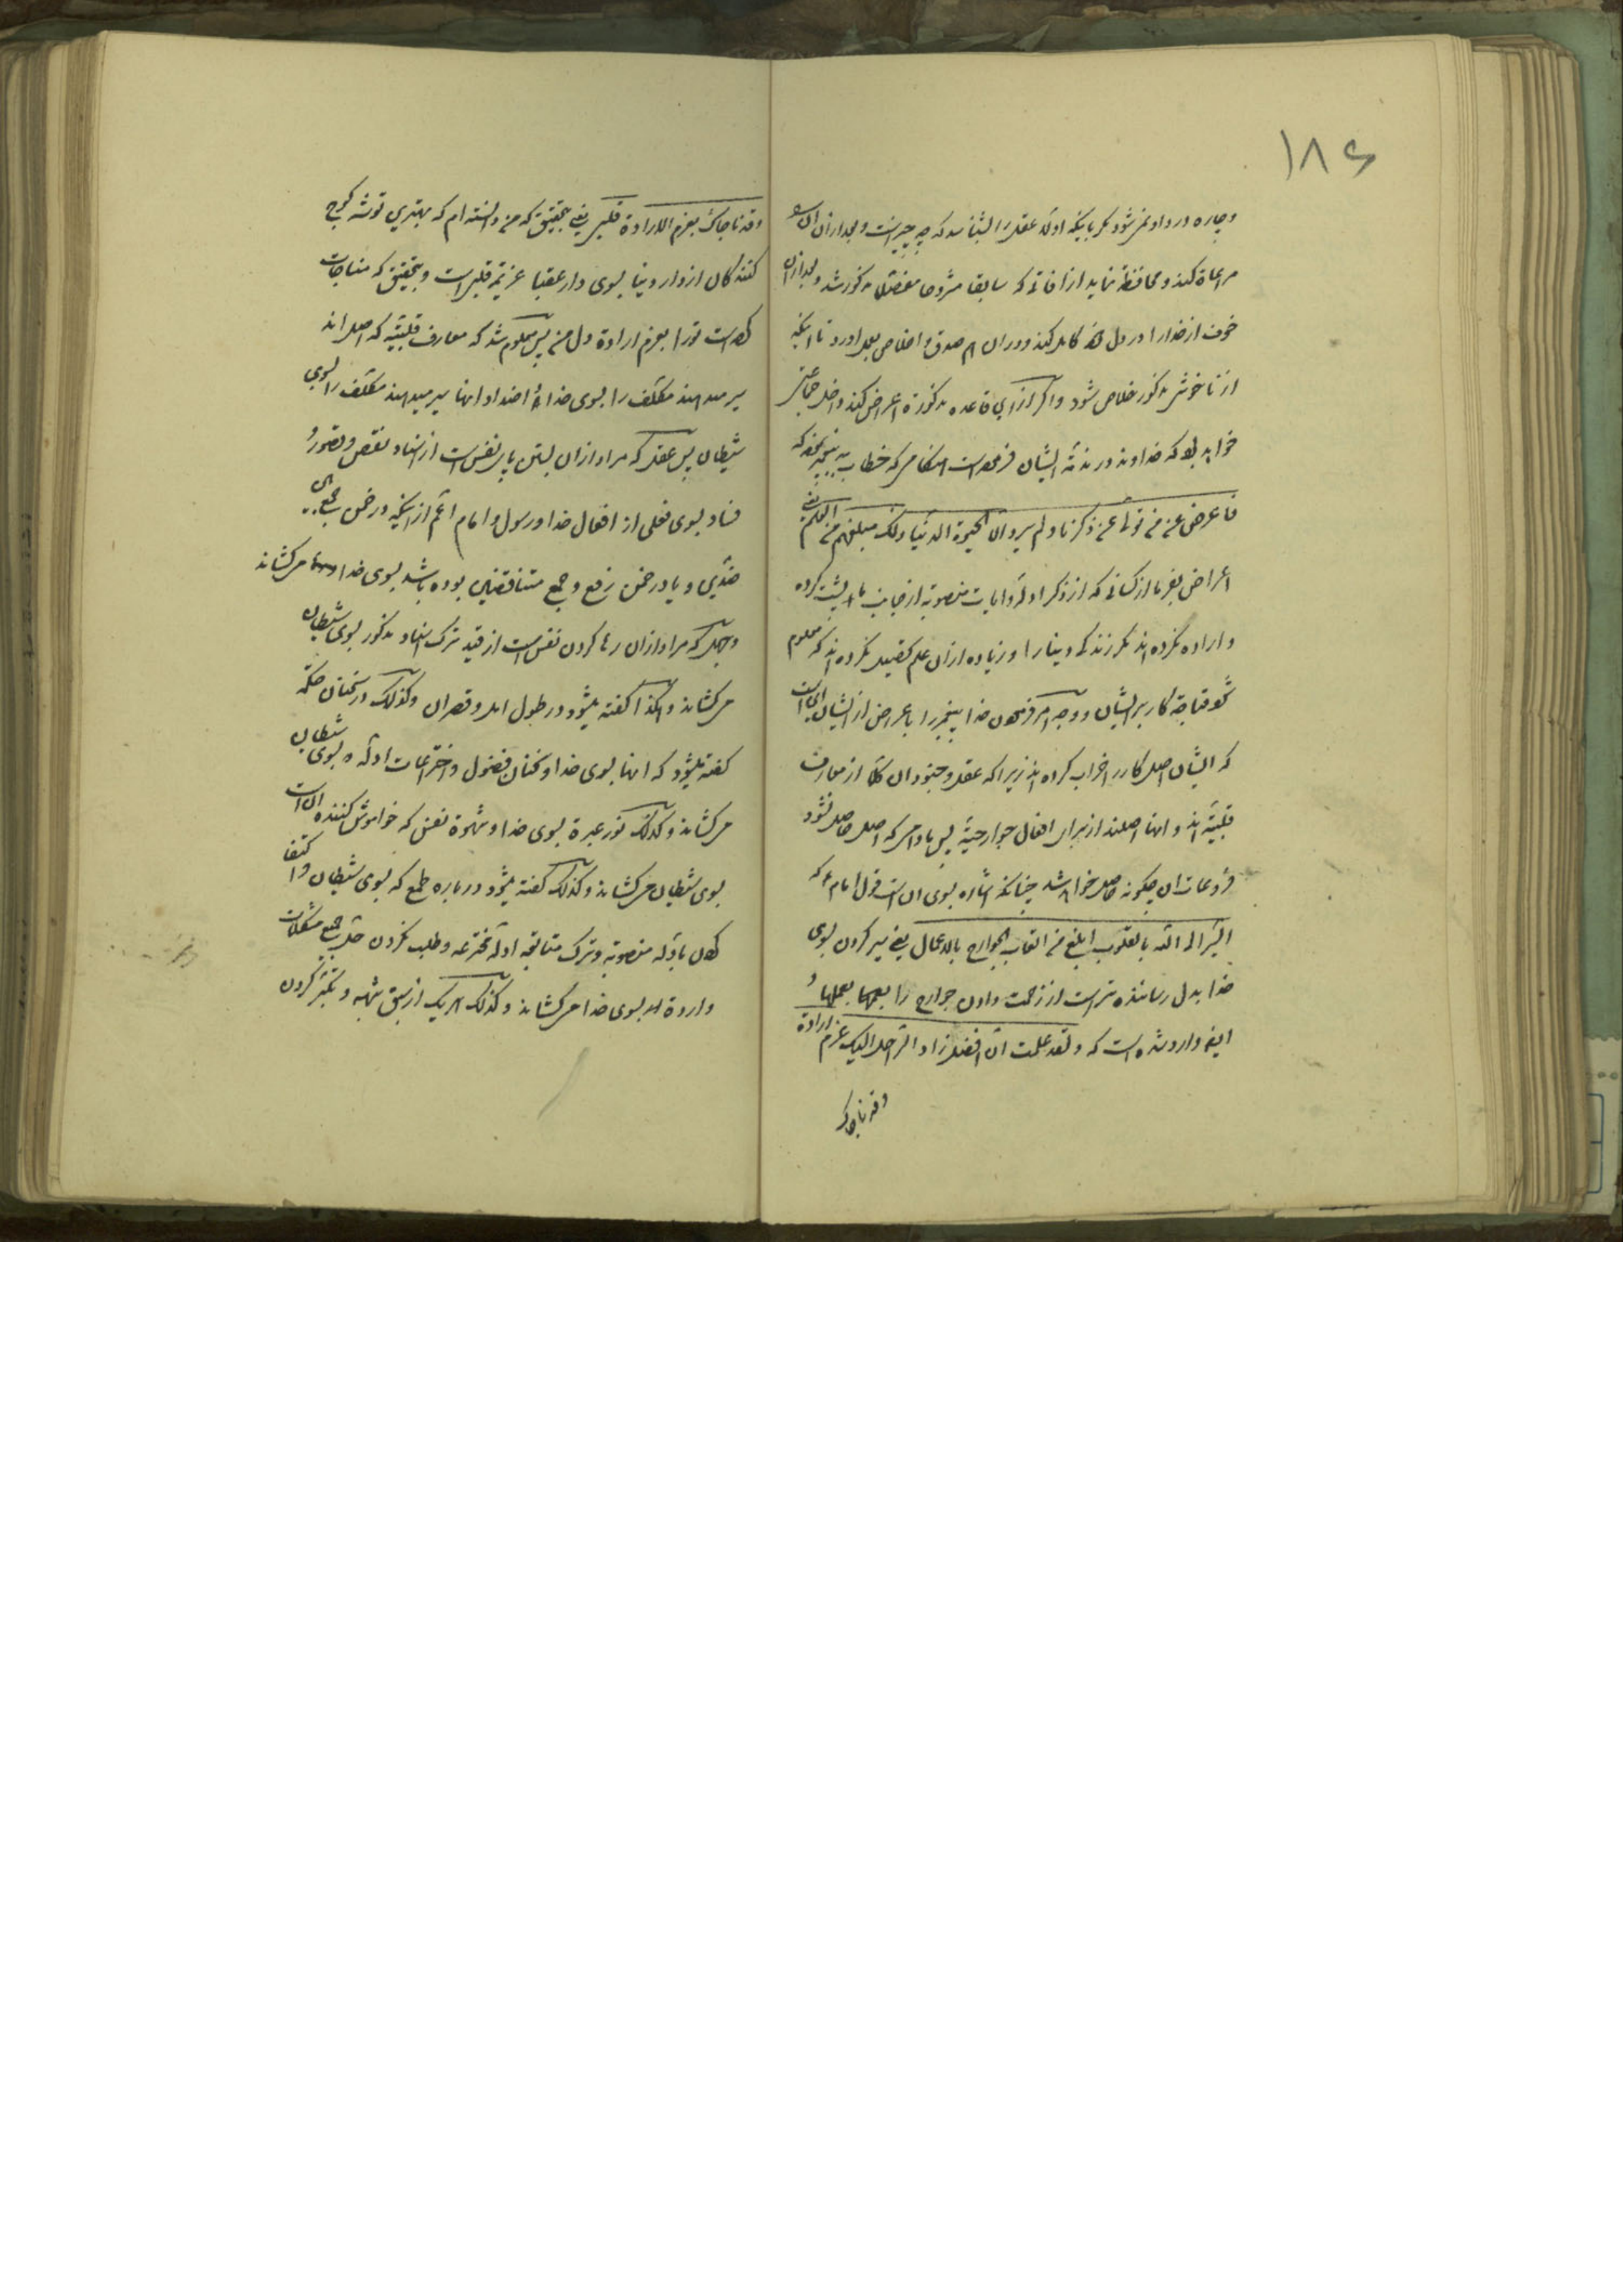 ۱۸۶
و چاره درد او نمیشود مگر باینکه اولا عقل را بشناسد که چه چیز است و بعد از آن
مراعاة کند و محافظة نماید از آفاتی که سابقا مشروحا مفصلا مذکور شد و بعد از آن
خوف از خدا را در دل خود کامل کند و در آن هم صدق و اخلاص بعمل اورد تا اینکه
از ناخوشی مذکور خلاص شود و اگر از این قاعده مذکوره اعراض کند داخل جماعتی
خواهد بود که خداوند در مذمة ایشان فرموده است هنگامی که خطاب به پیغمبر نموده که
فاعرض عن من تولی عن ذکرنا و لم یرد الا الحیوة الدنیا ذلک مبلغهم من العلم یعنی
اعراض بفرما از کسانی که از ذکر ادله و امارات منصوبه از جانب ما پشت کرده
و اراده نکرده اند مگر زندگی دنیا را و زیاده از آن علم تحصیل نکرده اند که معلوم
شود قباحة کار بر ایشان و وجه امر فرمودن خدا پیغمبر را باعراض از ایشان این است
که ایشان اصل کار را خراب کرده اند زیرا که عقل و جنود آن کلا از معارف
قلبیة اند و اینها اصلند از برای افعال جوارحیة پس مادامی که اصل حاصل نشود
فروعات آن چگونه حاصل خواهد شد چنانکه اشاره بسوی آن است قول امام ع که
السیر الی الله بالقلوب ابلغ من اتعاب الجوارح بالاعمال یعنی سیر کردن بسوی
خدا بدل رساننده تر است از زحمت دادن جوارح را بعملها و
ایضا وارد شده است که و لقد علمت ان افضل زاد الراحل الیک عزم ارادة
و قد ناجاک
و قد ناجاک بعزم الارادة قلبی یعنی بتحقیق که من دانسته ام که بهترین توشه کوچ
کنندگان از دار دنیا بسوی دار عقبا عزیمة قلبی است و بتحقیق که مناجات
کرده است تو را بعزم ارادة دل من پس معلوم شد که معارف قلبیة که اصل اند
سیر میدهند مکلف را بسوی خدا و اضداد اینها سیر میدهند مکلف را بسوی
شیطان پس عقل که مراد از آن بستن پای نفس است از اسناد نقص و قصور و
فساد بسوی فعلی از افعال خدا و رسول و امام اعم از اینکه در ضمن جمع بین
ضدین و یا در ضمن رفع و جمع متناقضین بوده باشد بسوی خدا میکشاند
و جهل که مراد از آن رها کردن نفس است از قید ترک اسناد مذکور بسوی شیطان
میکشاند و هکذا گفته میشود در طول امل و قصر آن و کذلک در سخنان حکمة
گفته میشود که اینها بسوی خدا و سخنان فضول و اختراعات ادله بسوی شیطان
میکشاند و کذلک نور عبرة بسوی خدا و شهوة نفس که خواموش کننده آن است
بسوی شیطان میکشاند و کذلک گفته میشود درباره طمع که بسوی شیطان و اکتفا
کردن بادله منصوبه و ترک متابعة ادله مخترعه و طلب نکردن حل جمیع مشکلات
وارده بسوی خدا میکشاند و کذلک هریک از سبق شبهه و تکبر کردن